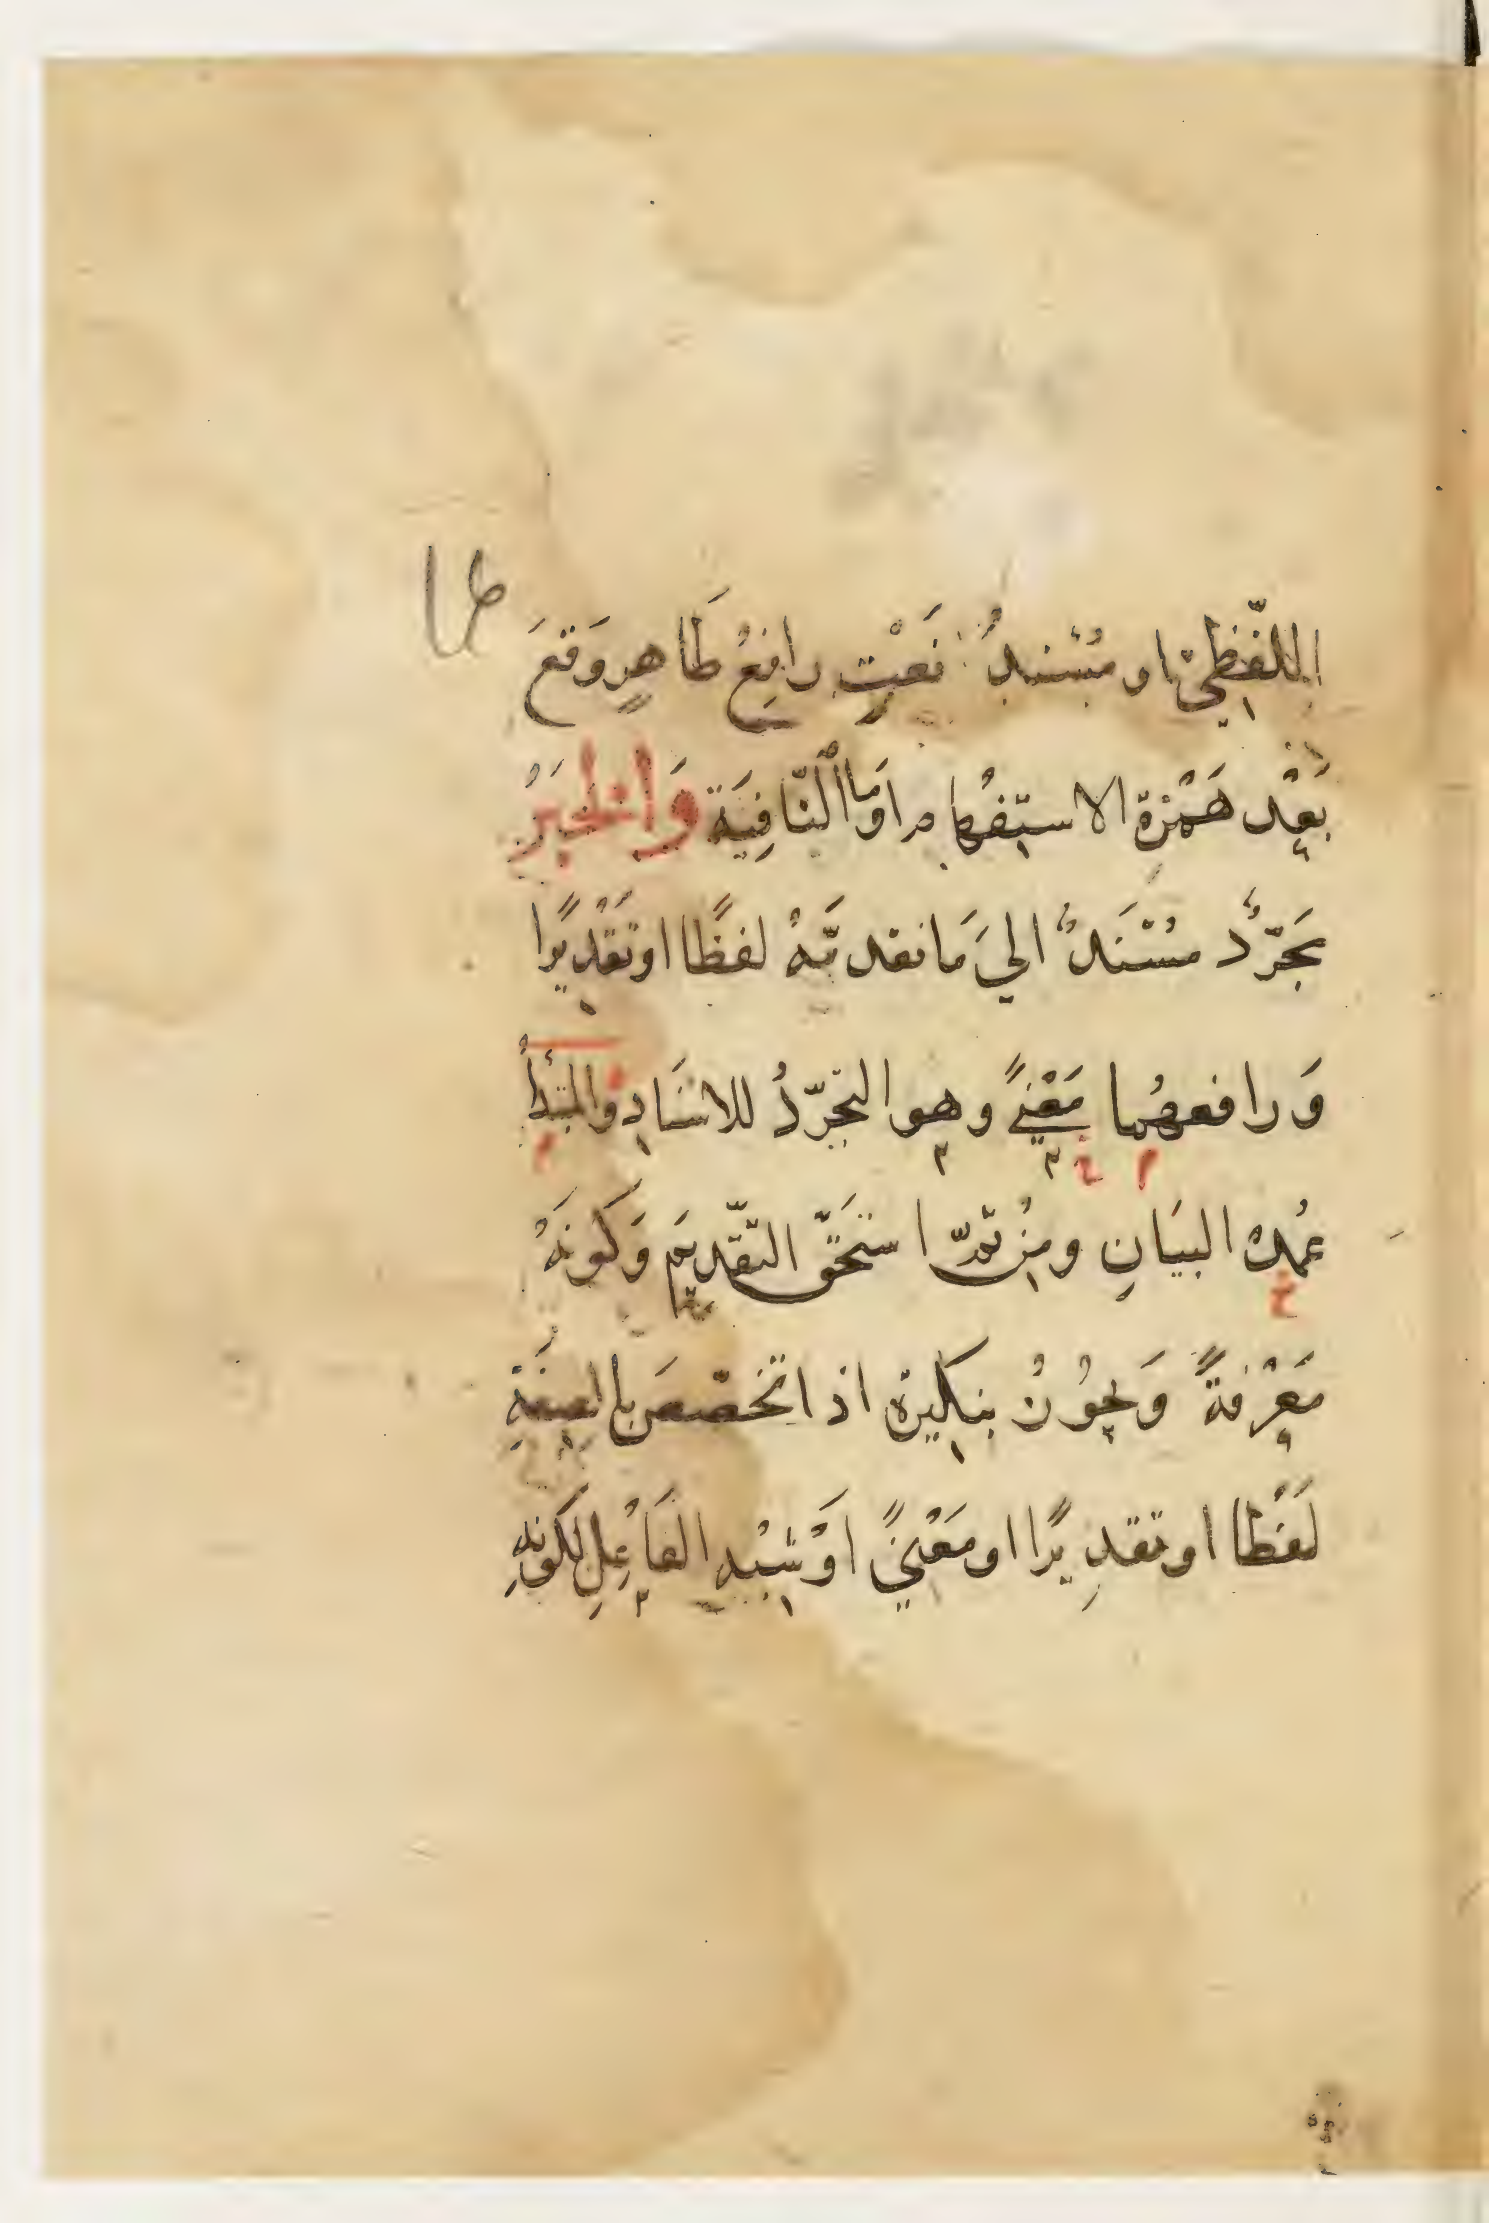 اللفظيّ او مُسْندٌ نَعْتٍ رافعُ ظَاهِرٍ وَقَعَ
بَعْد هَمْزة الاستفهام اوَمَا النَّافِيَة وَالخبَرُ
مجَرَّدٌ مسْنَدٌ اليَ مَا تقدمَّهُ لفظًا اوتَقْديرًا
وَرافعهُما مَعْنيً وهوا لتجرّدُ للاسنَادِ والمبتدأُ
عُمدهُ البيَانِ ومِنْ ثمّ استحَقّ التّقديمَ وَكونَهُ
مَعْرفةً وَيجوُز بنكيرة اذا تخصّص بالصِفَةِ
لَفْظا او تقدِيرًا او مَعْنيً اوْ شبْه الفَاعِلِ لكونهِ